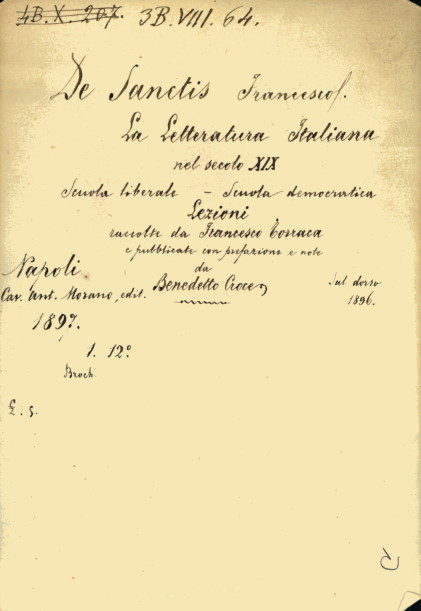 4B.X. 207. 3B.VIII. 64.
De Sanctis Francesco.
La Letteratura Italiana
nel secolo XIX
Scuola liberale - Scuola democratica
Lezioni
raccolte da Francesco Torraca
e pubblicate con prefazione e note
da
Benedetto Croce
Napoli.
Cav. Ant. Morano, edit.
Sul dorso
1896.
1897.
1. 12°
Broch.